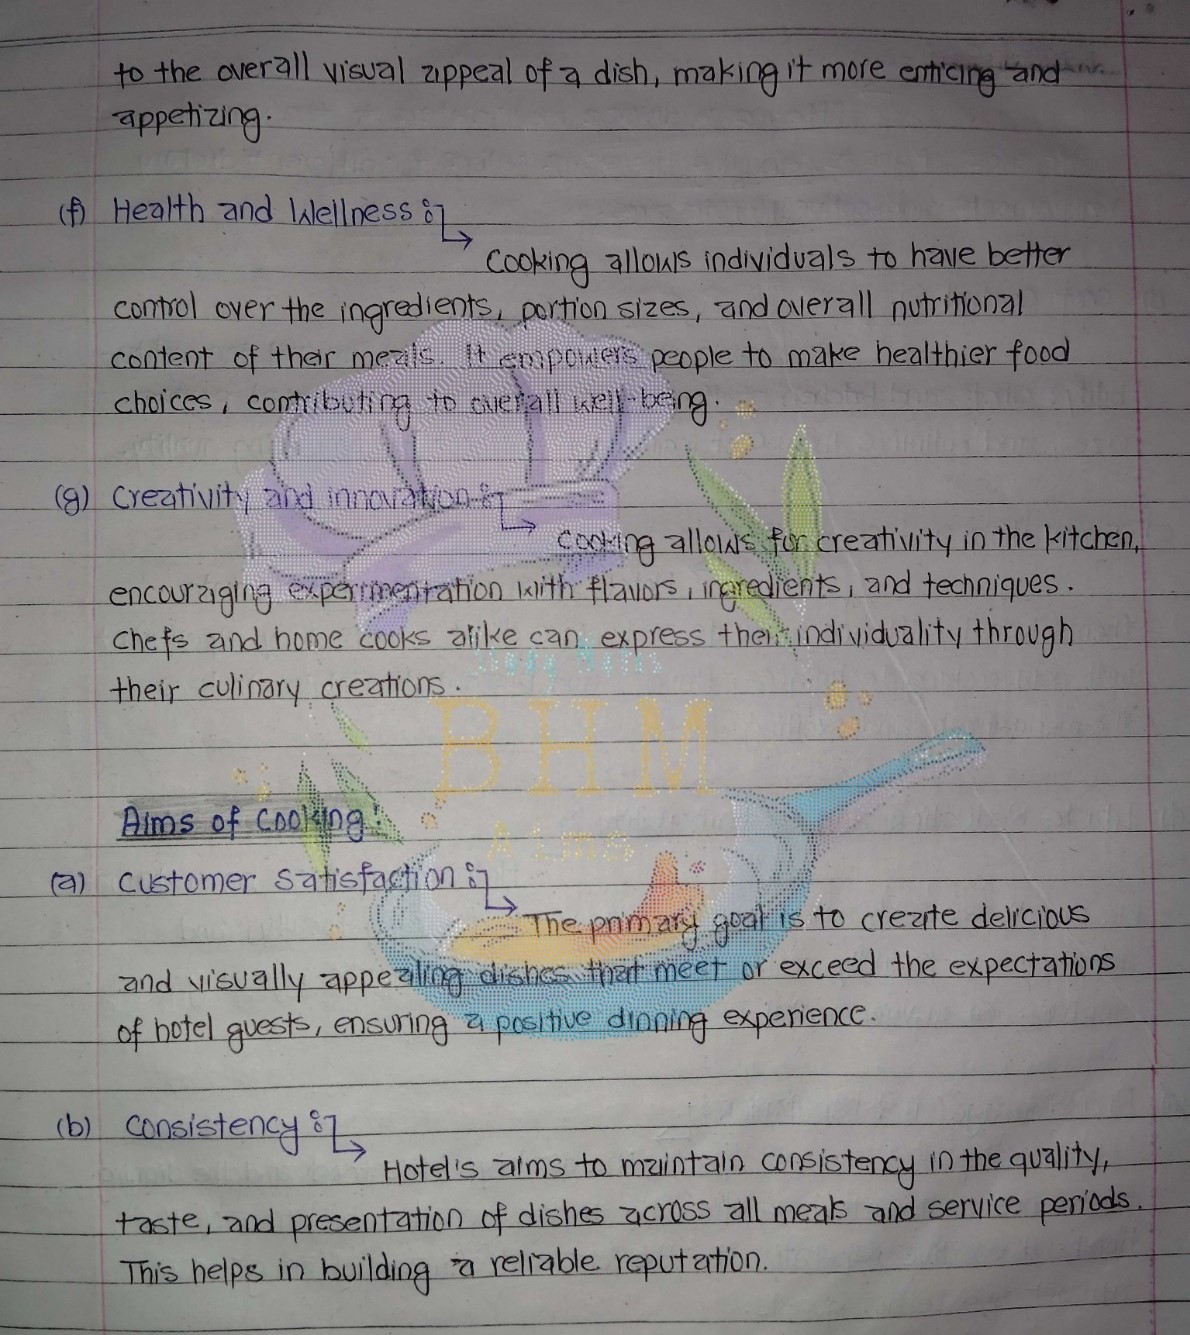 to the overall visual appeal of a dish, making it more enticing and
appetizing.
(f) Health and Wellness :
Cooking allows individuals to have better
control over the ingredients, portion sizes, and overall nutritional
content of their meals. It empowers people to make healthier food
choices, contributing to overall well-being.
(g) Creativity and innovation :
Cooking allows for creativity in the kitchen,
encouraging experimentation with flavors, ingredients, and techniques.
Chefs and home cooks alike can express their individuality through
their culinary creations.
BHM
Aims of Cooking :
Aims
(a) Customer Satisfaction :
The primary goal is to create delicious
and visually appealing dishes that meet or exceed the expectations
of hotel guests, ensuring a positive dinning experience.
(b) Consistency :
Hotel's aims to maintain consistency in the quality,
taste, and presentation of dishes across all meals and service periods.
This helps in building a reliable reputation.